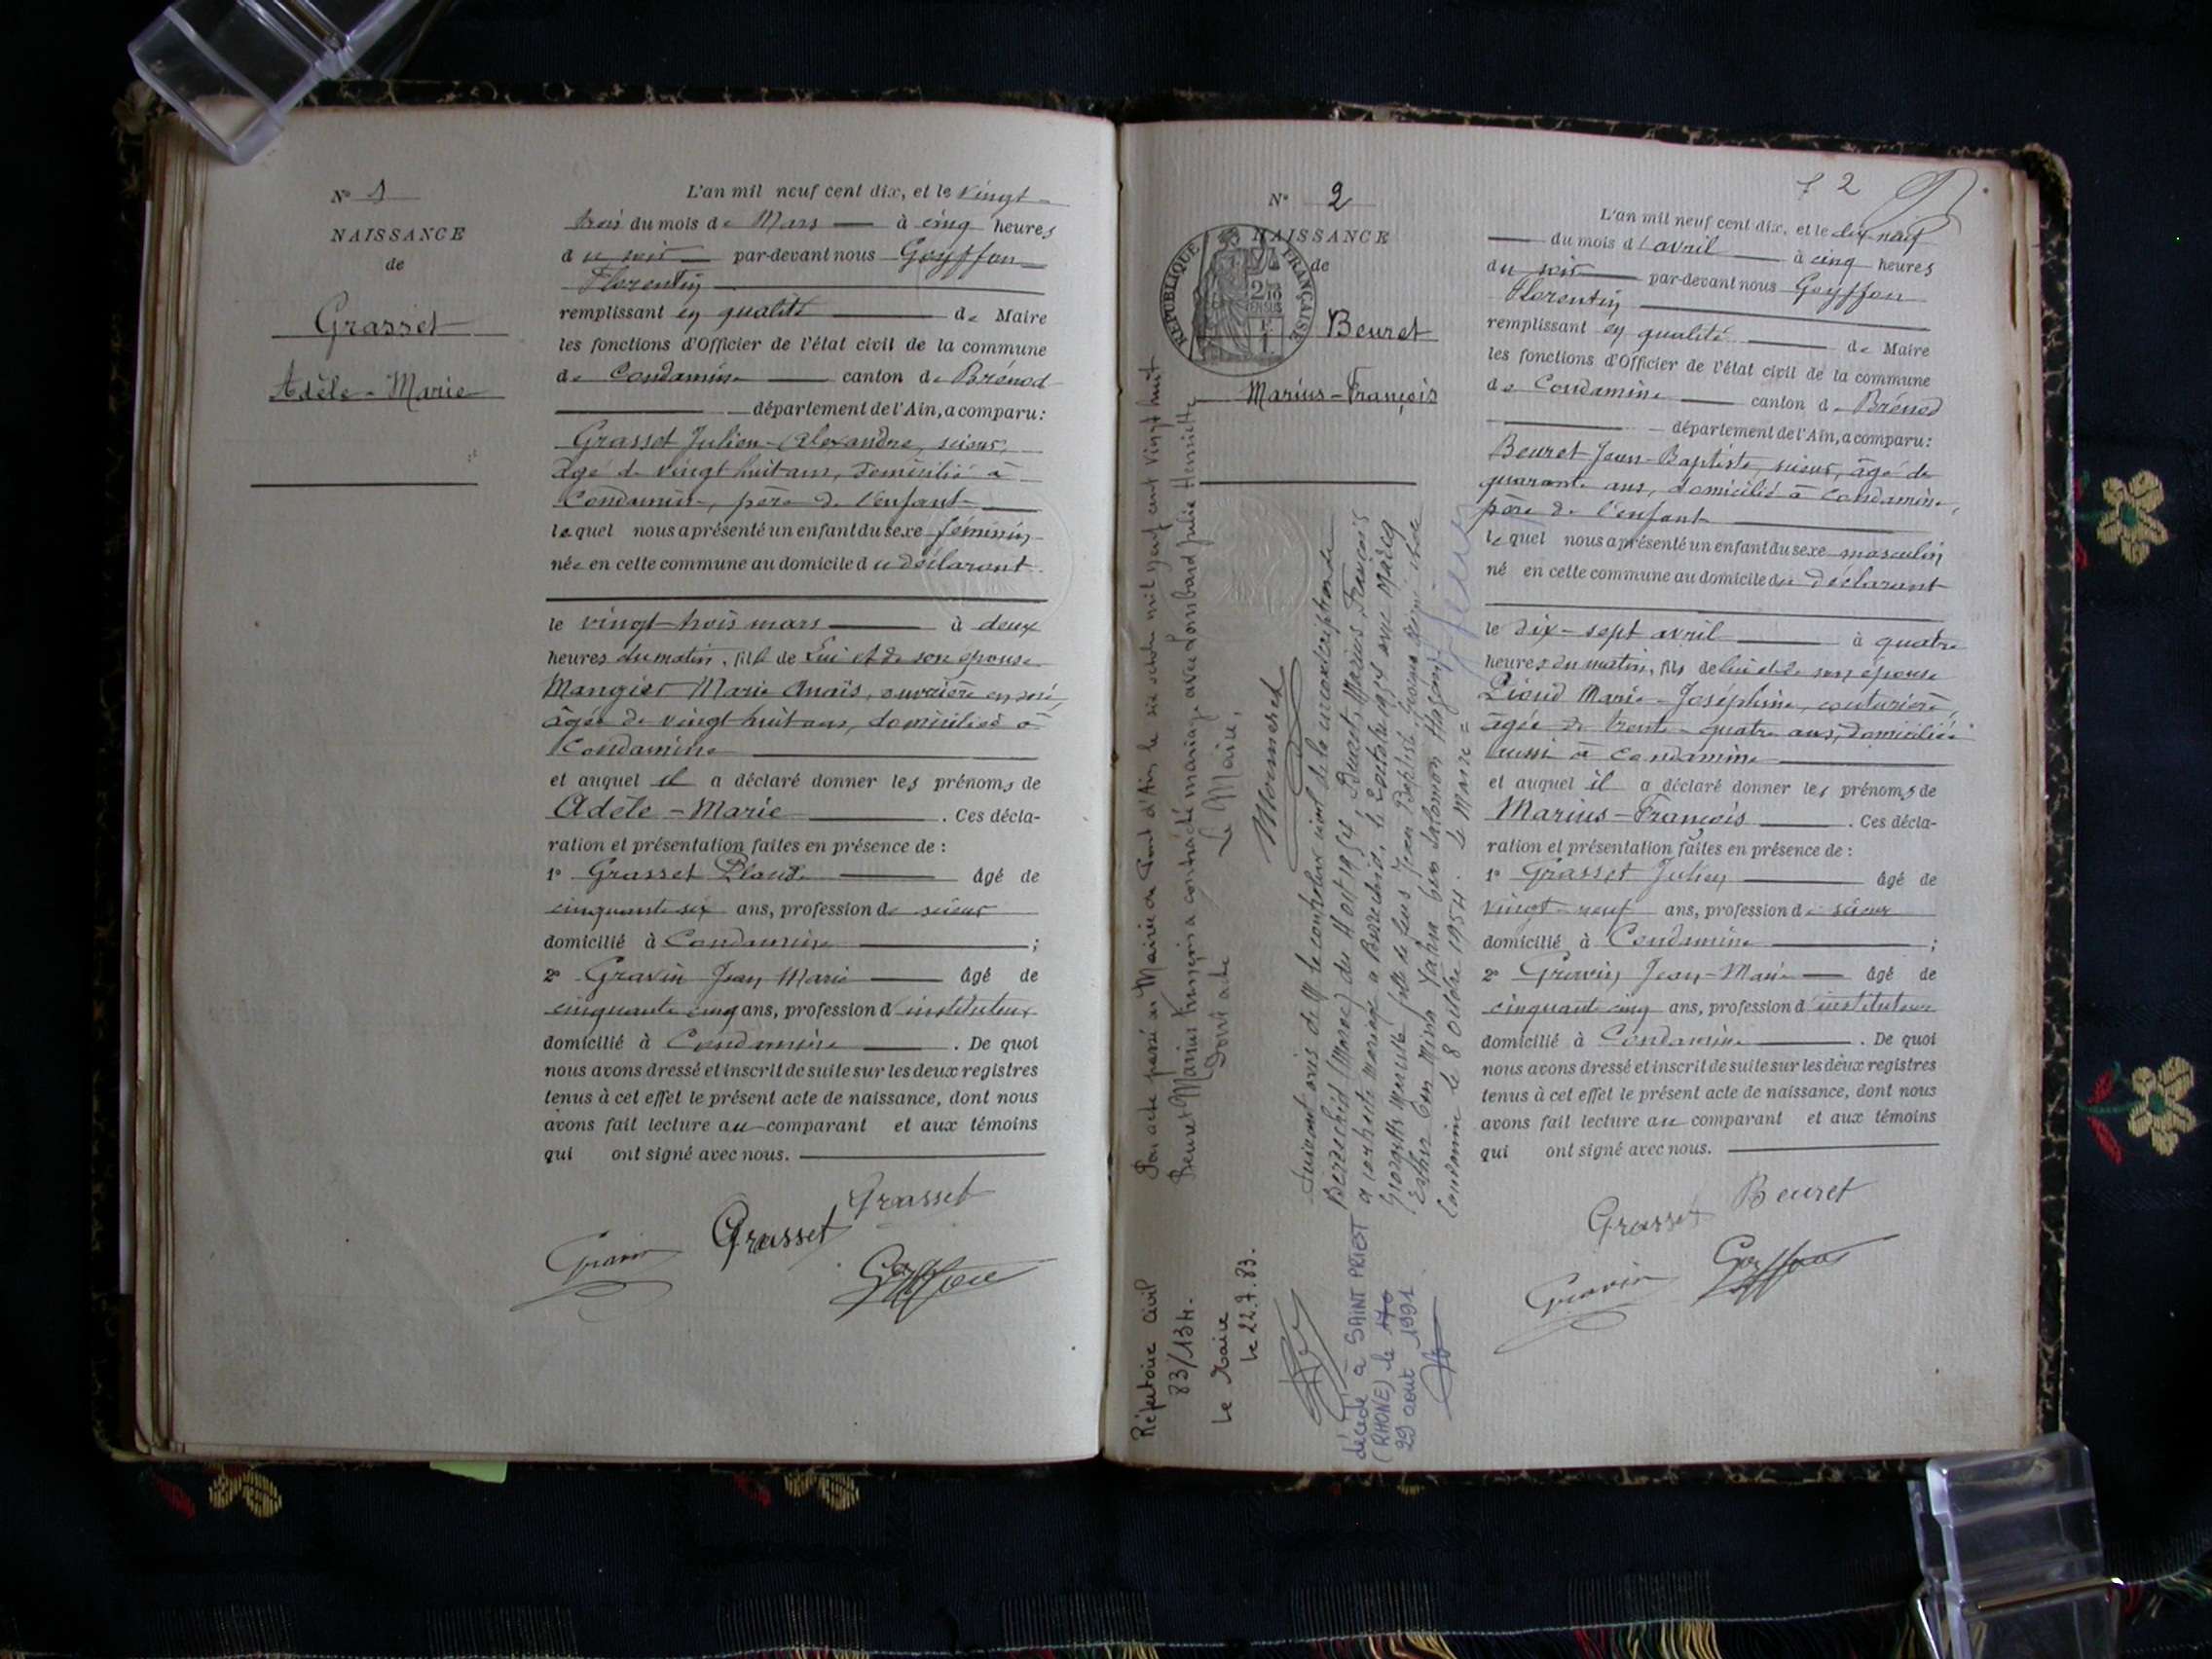 Nº 1
NAISSANCE
de
Grasset
Adèle-Marie
L'an mil neuf cent dix, et le vingt-
trois du mois de Mars à cinq heures
du soir par-devant nous Goyffon
Florentin
remplissant en qualité de Maire
les fonctions d'Officier de l'état civil de la commune
de Condamine canton de Brénod
département de l'Ain, a comparu:
Grasset Julien-Alexandre, scieur,
âgé de vingt huit ans, domicilié à
Condamine, père de l'enfant
lequel nous a présenté un enfant du sexe féminin
née en cette commune au domicile du déclarant
le vingt-trois mars à deux
heures du matin, fille de Lui et de son épouse
Mangier Marie Anaïs, ouvrière en soie,
âgée de vingt huit ans, domiciliée à
Condamine
et auquel il a déclaré donner les prénoms de
Adèle-Marie. Ces décla-
ration et présentation faites en présence de :
1º Grasset Claude âgé de
cinquante six ans, profession de scieur
domicilié à Condamine ;
2º Gravin Jean Marie âgé de
cinquante cinq ans, profession d'instituteur
domicilié à Condamine. De quoi
nous avons dressé et inscrit de suite sur les deux registres
tenus à cet effet le présent acte de naissance, dont nous
avons fait lecture au comparant et aux témoins
qui ont signé avec nous.
Grasset
Grasset
Gravin
Goyffon
Nº 2
NAISSANCE
de
REPUBLIQUE FRANÇAISE
Beuret
Marius-François
Par acte passé en Mairie de Pont d'Ain, le six octobre mil neuf cent vingt huit
Beuret Marius François a contracté mariage avec Lombard Julie Henriette
Dont acte Le Maire,
Monneret
Suivant avis de M. le contrôleur civil de la circonscription de
Berrechid (Maroc) du 4 oct 1954, Beuret Marius, François
a contracté mariage à Berrechid, le 2 octobre 1954 avec
Georgette fille de feus Jean Baptiste
Condamine le 8 Octobre 1954. Le Maire =
Répertoire Civil
83/134.
Le Maire
le 22.7.83.
décédé à SAINT PRIEST
(RHONE) le
29 août 1991
7 2
L'an mil neuf cent dix, et le dix-neuf
du mois d'avril à cinq heures
du soir par-devant nous Goyffon
Florentin
remplissant en qualité de Maire
les fonctions d'Officier de l'état civil de la commune
de Condamine canton de Brénod
département de l'Ain, a comparu:
Beuret Jean-Baptiste, scieur, âgé de
quarante ans, domicilié à Condamine,
père de l'enfant
lequel nous a présenté un enfant du sexe masculin
né en cette commune au domicile du déclarant
le dix-sept avril à quatre
heures du matin, fils de lui et de son épouse
Marie-Joséphine, couturière,
âgée de trente-quatre ans, domiciliée
aussi à Condamine
et auquel il a déclaré donner les prénoms de
Marius-François. Ces décla-
ration et présentation faites en présence de :
1º Grasset Julien âgé de
vingt-neuf ans, profession de scieur
domicilié à Condamine ;
2º Gravin Jean-Marie âgé de
cinquante cinq ans, profession d'instituteur
domicilié à Condamine. De quoi
nous avons dressé et inscrit de suite sur les deux registres
tenus à cet effet le présent acte de naissance, dont nous
avons fait lecture au comparant et aux témoins
qui ont signé avec nous.
Beuret
Grasset
Gravin
Goyffon